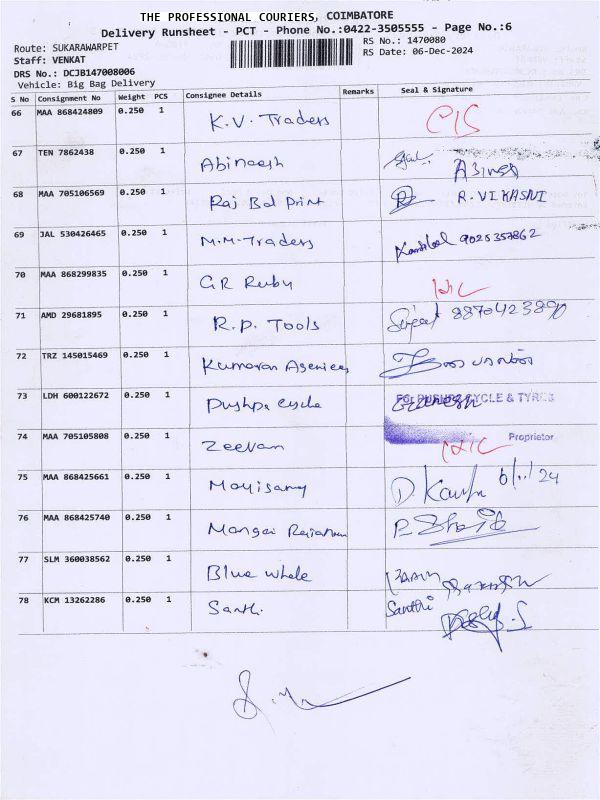 THE PROFESSIONAL COURIERS, COIMBATORE
Delivery Runsheet - PCT - Phone No.:0422-3505555 - Page No.:6
Route: SUKARAWARPET
RS No.: 1470080
Staff: VENKAT
RS Date: 06-Dec-2024
DRS No.: DCJB147008006
Vehicle: Big Bag Delivery
S No Consignment No Weight PCS Consignee Details Remarks Seal & Signature
66 MAA 868424809 0.250 1 K.V. Traders
67 TEN 7862438 0.250 1 Abineesh
68 MAA 705106569 0.250 1 Raj Bal Print R. VIKASNI
69 JAL 530426465 0.250 1 M.M. Traders 9025357862
70 MAA 868299835 0.250 1 GR Ruby
71 AMD 29681895 0.250 1 R.P. Tools 8870423890
72 TRZ 145015469 0.250 1 Kumaran Agenices
73 LDH 600122672 0.250 1 Pushpa cycle For PUSHPA CYCLE & TYRES
Proprietor
74 MAA 705105808 0.250 1 Zeevan
75 MAA 868425661 0.250 1 Moyisamy
76 MAA 868425740 0.250 1 Mangai
77 SLM 360038562 0.250 1 Blue whale
78 KCM 13262286 0.250 1 Santhi Santhi